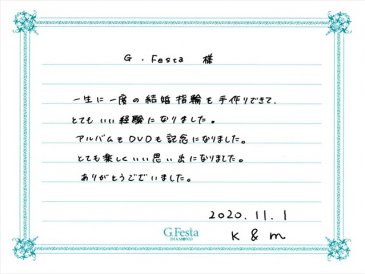 G.Festa 様
一生に一度の結婚指輪を手作りできて、
とてもいい経験になりました。
アルバムもDVDも記念になりました。
とても楽しくいい思い出になりました。
ありがとうございました。
2020.11.1
K & m
G.Festa
DIAMOND